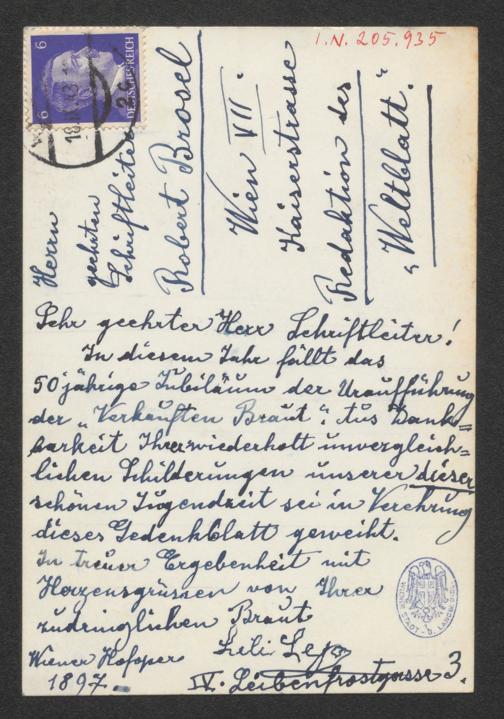 I.N. 205.935
6 6
DEUTSCHES REICH
Herrn
geehrten
Schriftleiter
Robert Brosel
Wien VII.
Kaiserstrasse
Redaktion des
„Weltblatt."
Sehr geehrter Herr Schriftleiter!
In diesem Jahr fällt das
50 jährige Jubiläum der Uraufführung
der „Verkauften Braut". Aus Dank=
barkeit Ihrer wiederholt unvergleich=
lichen Schilderungen unserer dieser
schönen Jugendzeit sei in Verehrung
dieses Gedenkblatt geweiht.
In treuer Ergebenheit mit
Herzensgrüssen von Ihrer
zudringlichen Braut
Lili Lejo
Wiener Hofoper
1897.
IV. Leibenfrostgasse 3.